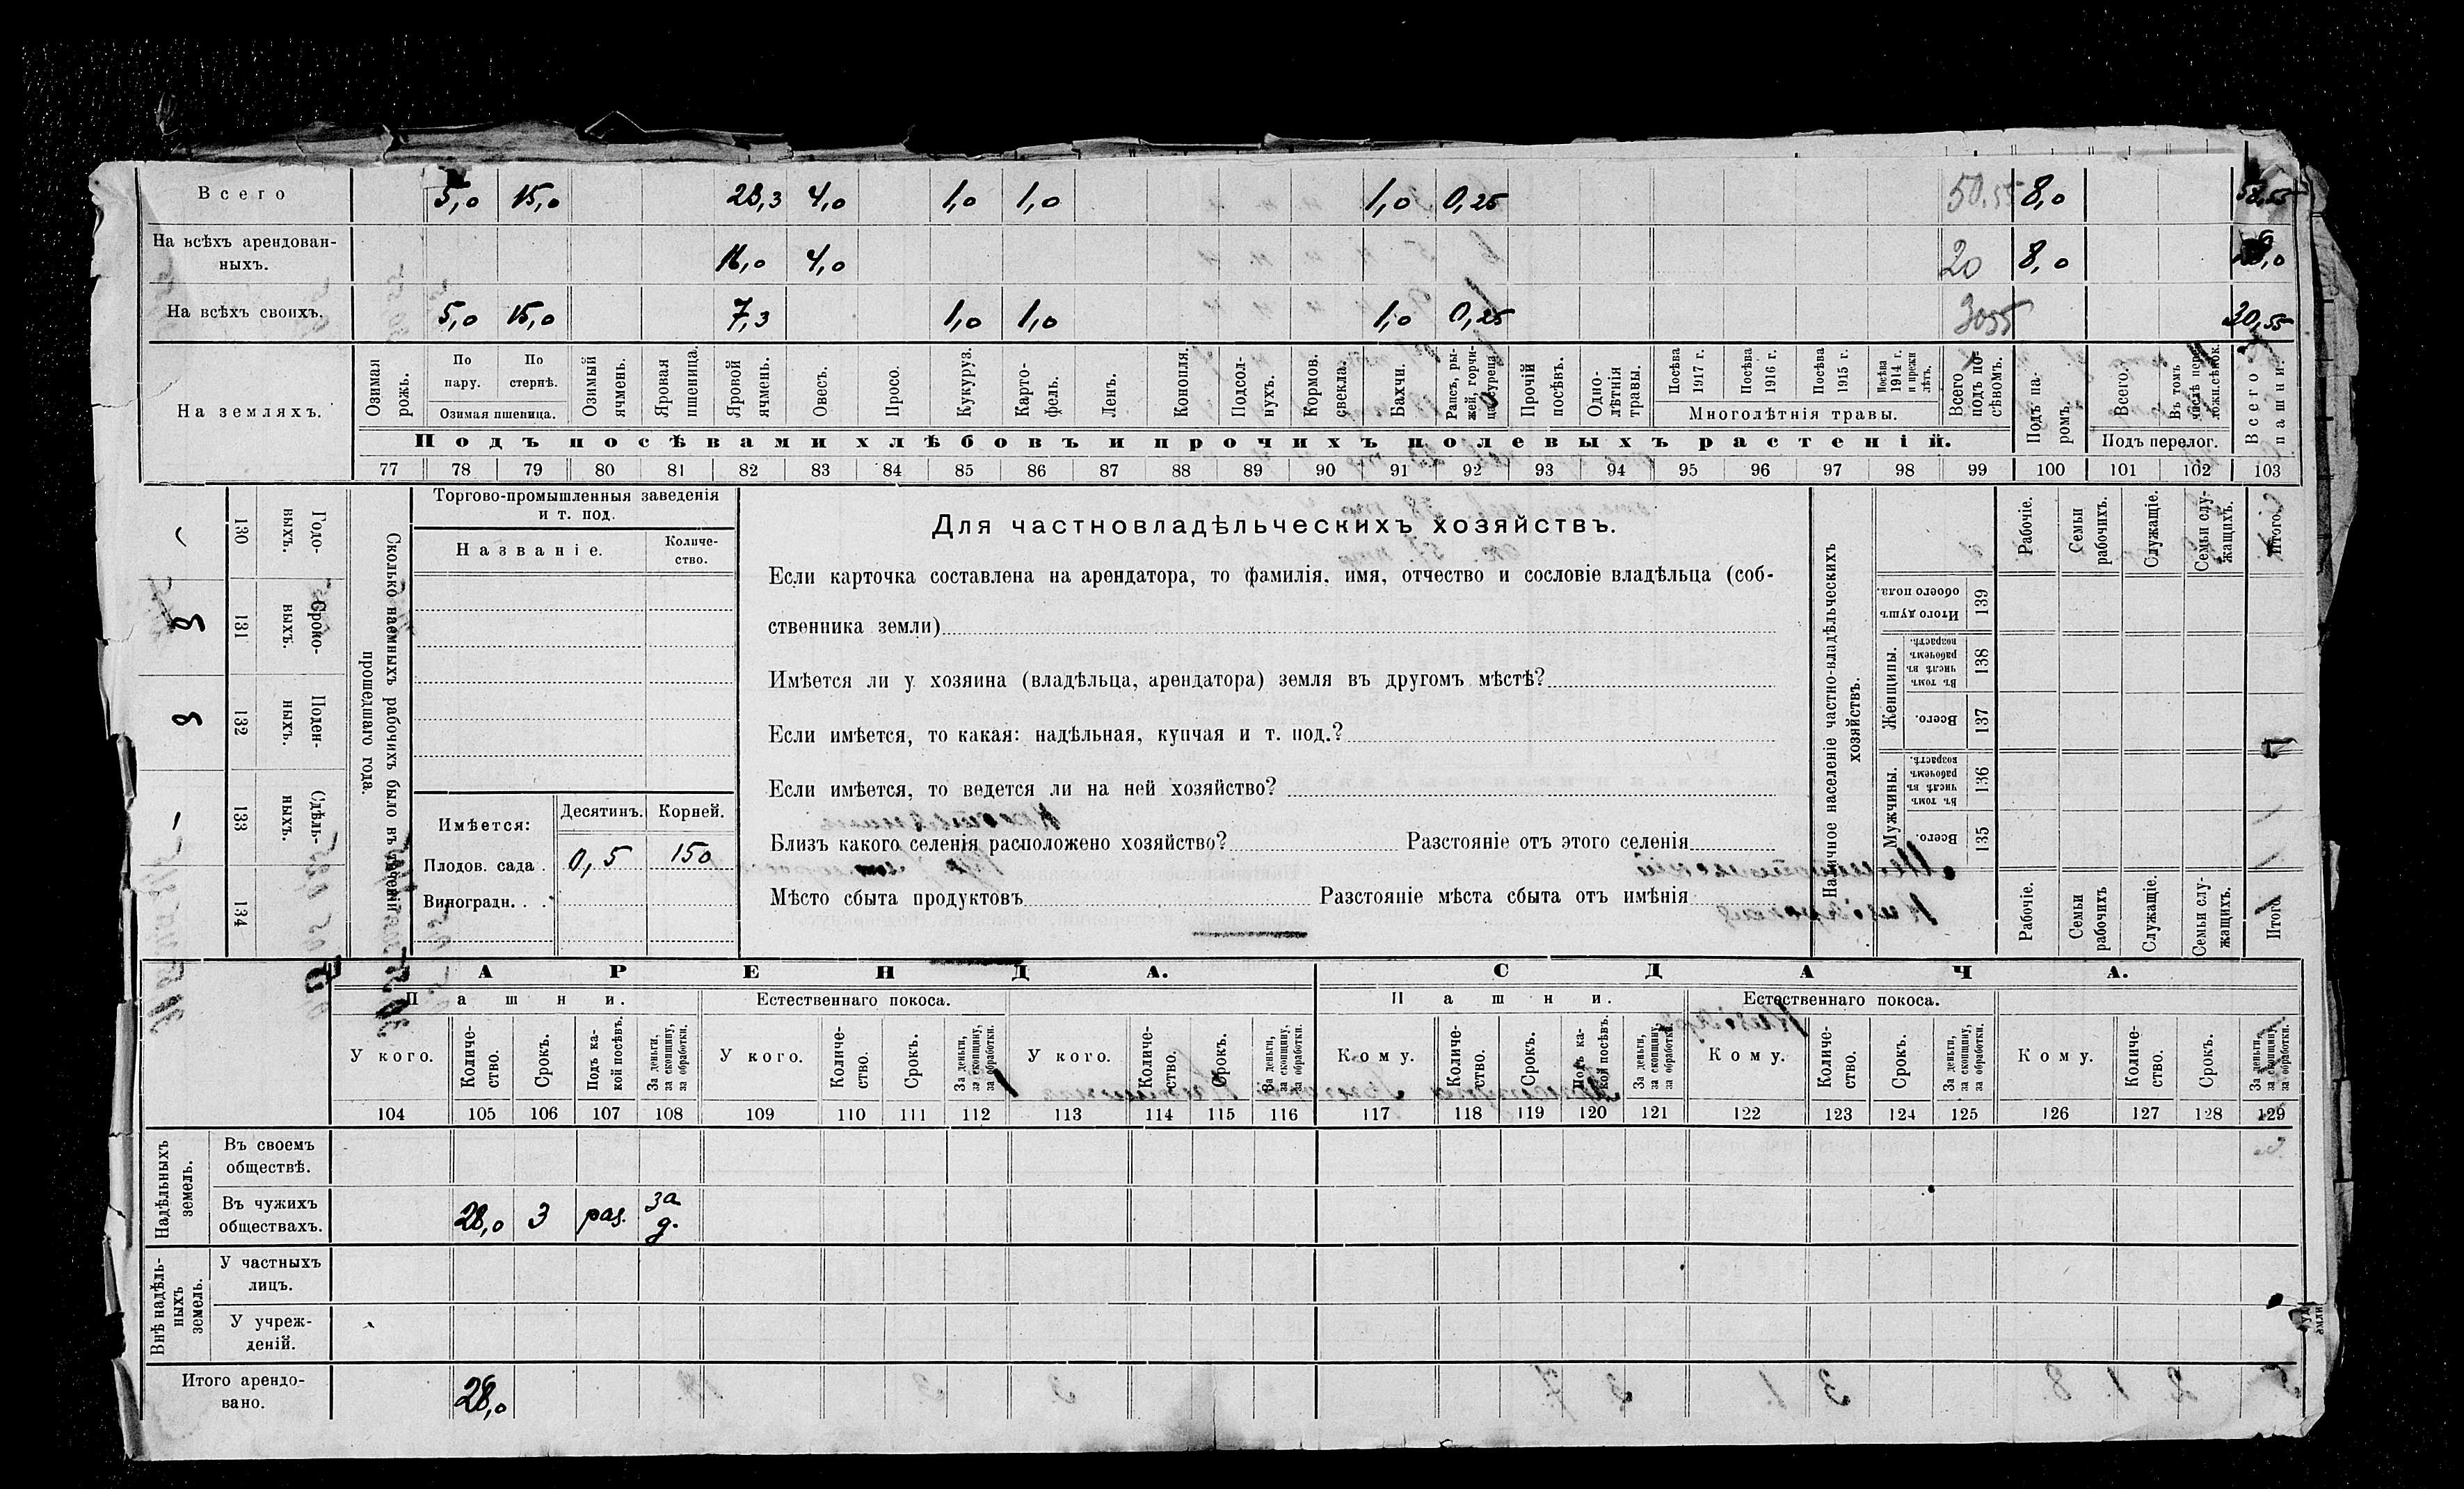 Всего 5,0 15,0 23,3 4,0 1,0 1,0 1,0 0,25 50,55 8,0 58,55
На всѣхъ арендован-
ныхъ. 16,0 4,0 20 8,0 28,0
На всѣхъ своихъ. 5,0 15,0 7,3 1,0 1,0 1,0 0,25 3055 30,55
На земляхъ.
Озимая рожь.
По пару.
По стернѣ.
Озимая пшеница.
Озимый ячмень.
Яровая пшеница.
Яровой ячмень.
Овесъ.
Просо.
Кукуруз.
Карто-
фель.
Ленъ.
Конопля.
Подсол-
нухъ.
Кормов. свекла.
Бахчи.
Рапсъ, ры-
жей, горчи-
ца, сурепа.
Прочій посѣвъ.
Одно-
лѣтнія травы.
Посѣва 1917 г.
Посѣва 1916 г.
Посѣва 1915 г.
Посѣва 1914 г. и прежн. лѣтъ.
Многолѣтнія травы.
Всего подъ по-
сѣвомъ.
Подъ па-
ромъ.
Всего.
Въ томъ числѣ пере-
ложн. сѣнок.
Подъ перелог.
Всего пашни.
Подъ посѣвами хлѣбовъ и прочихъ полевыхъ растеній.
77 78 79 80 81 82 83 84 85 86 87 88 89 90 91 92 93 94 95 96 97 98 99 100 101 102 103
Сколько наемныхъ рабочихъ было въ теченіи
прошедшаго года.
Годо-
выхъ. 130
Сроко-
выхъ. 131 3
Поден-
ныхъ. 132 8
Сдѣль-
ныхъ. 133 —
134
Торгово-промышленныя заведенія
и т. под.
Названіе.
Количе-
ство.
Имѣется: Десятинъ. Корней.
Плодов. сада . 0,5 150
Виноградн. . .
Для частновладѣльческихъ хозяйствъ.
Если карточка составлена на арендатора, то фамилія, имя, отчество и сословіе владѣльца (соб-
ственника земли)
Имѣется ли у хозяина (владѣльца, арендатора) земля въ другомъ мѣстѣ?
Если имѣется, то какая: надѣльная, купчая и т. под.?
Если имѣется, то ведется ли на ней хозяйство?
Близъ какого селенія расположено хозяйство? Разстояніе отъ этого селенія
Мѣсто сбыта продуктовъ Разстояніе мѣста сбыта отъ имѣнія
Наличное населеніе частно-владѣльческихъ
хозяйствъ.
Рабочіе.
Семьи рабочихъ.
Служащіе.
Семьи слу-
жащихъ.
Итого.
Итого душъ обоего пола. 139
Женщины.
Въ томъ числѣ въ рабочемъ возрастѣ. 138
Всего. 137
Мужчины.
Въ томъ числѣ въ рабочемъ возрастѣ. 136
Всего. 135
Рабочіе.
Семьи рабочихъ
Служащіе.
Семьи слу-
жащихъ.
Итого.
АРЕНДА. СДАЧА.
Пашни. Естественнаго покоса. Пашни. Естественнаго покоса.
У кого.
Количе-
ство.
Срокъ.
Подъ ка-
кой посѣвъ.
За деньги, за скопщину, за обработки.
У кого.
Количе-
ство.
Срокъ.
За деньги, за скопщину, за обработки.
У кого.
Количе-
ство.
Срокъ.
За деньги, за скопщину, за обработки.
Кому.
Количе-
ство.
Срокъ.
Подъ ка-
кой посѣвъ.
За деньги, за скопщину, за обработки.
Кому.
Количе-
ство.
Срокъ.
За деньги, за скопщину, за обработки.
Кому.
Количе-
ство.
Срокъ.
За деньги, за скопщину, за обработки.
104 105 106 107 108 109 110 111 112 113 114 115 116 117 118 119 120 121 122 123 124 125 126 127 128 129
Надѣльныхъ земель.
Въ своемъ
обществѣ.
Въ чужихъ
обществахъ. 28,0 3 раз. за д.
Внѣ надѣль-
ныхъ земель.
У частныхъ
лицъ.
У учреж-
деній.
Итого арендо-
вано. 28,0